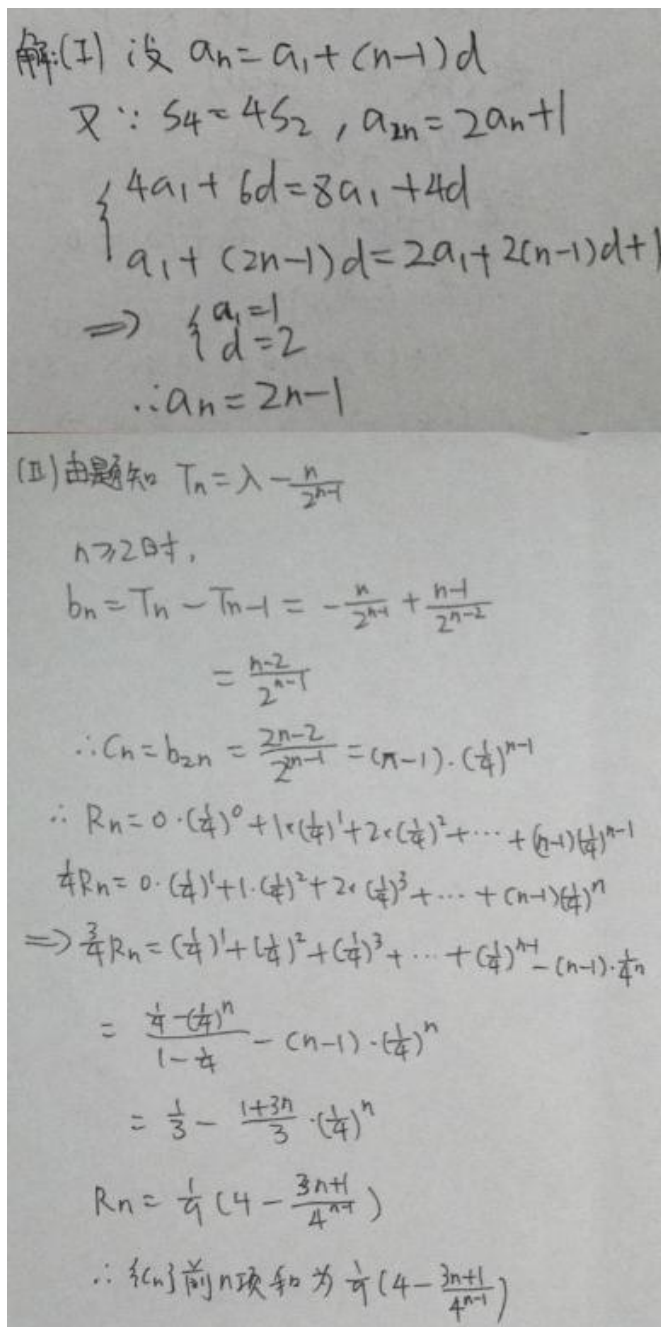 解:(I) 设 aₙ = a₁ + (n-1)d
又∵ S₄ = 4S₂ , a₂ₙ = 2aₙ+1
{ 4a₁ + 6d = 8a₁ + 4d
a₁ + (2n-1)d = 2a₁ + 2(n-1)d + 1
⇒ { a₁ = 1
d = 2
∴ aₙ = 2n-1
(II) 由题知 Tₙ = λ - n/2^(n-1)
n≥2时,
bₙ = Tₙ - Tₙ₋₁ = - n/2^(n-1) + (n-1)/2^(n-2)
= (n-2)/2^(n-1)
∴ Cₙ = b₂ₙ = (2n-2)/2^(2n-1) = (n-1)·(1/4)^(n-1)
∴ Rₙ = 0·(1/4)^0 + 1×(1/4)^1 + 2×(1/4)^2 + ⋯ + (n-1)(1/4)^(n-1)
1/4 Rₙ = 0·(1/4)^1 + 1·(1/4)^2 + 2×(1/4)^3 + ⋯ + (n-1)(1/4)^n
⇒ 3/4 Rₙ = (1/4)^1 + (1/4)^2 + (1/4)^3 + ⋯ + (1/4)^(n-1) - (n-1)·1/4^n
= (1/4 - (1/4)^n)/(1 - 1/4) - (n-1)·(1/4)^n
= 1/3 - (1+3n)/3 ·(1/4)^n
Rₙ = 1/9 (4 - (3n+1)/4^(n-1))
∴ {Cₙ}前n项和为 1/9 (4 - (3n+1)/4^(n-1))